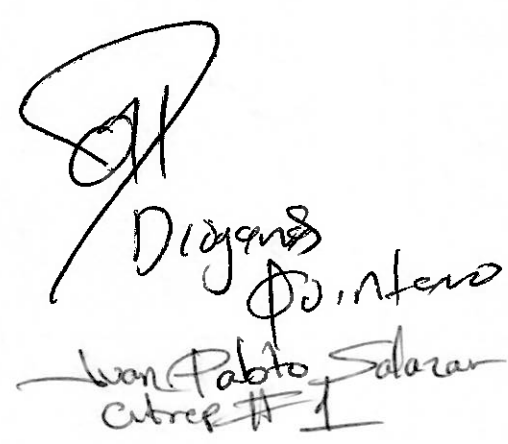 Diogenes
Quintero
Juan Pablo Salazar
Citrep # 1